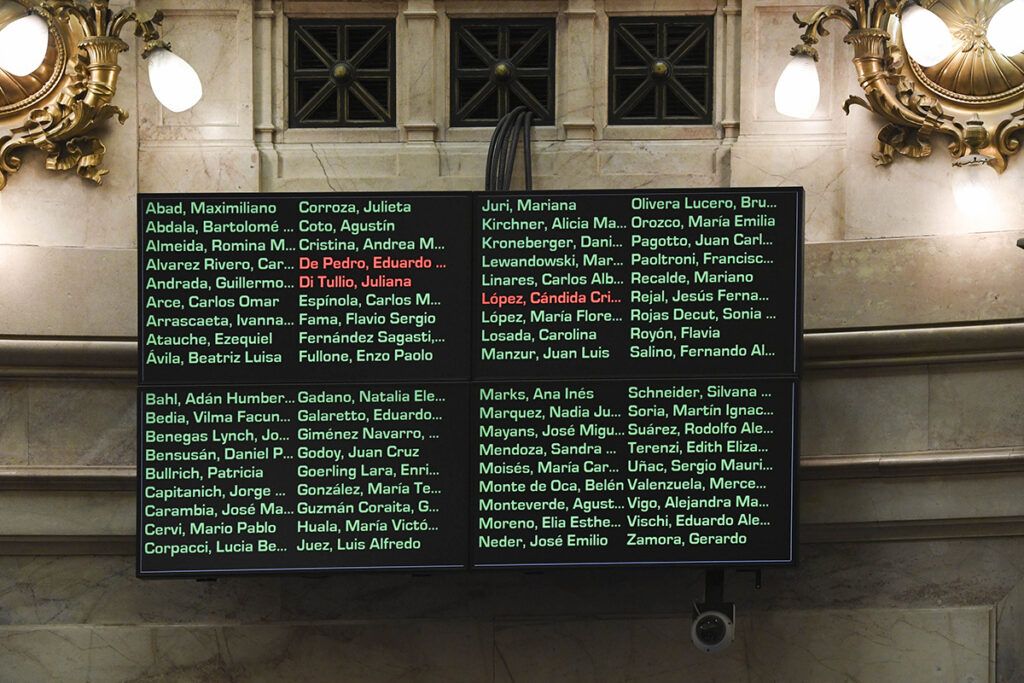 Abad, Maximiliano
Abdala, Bartolomé ...
Almeida, Romina M...
Alvarez Rivero, Car...
Andrada, Guillermo...
Arce, Carlos Omar
Arrascaeta, Ivanna...
Atauche, Ezequiel
Ávila, Beatriz Luisa
Corroza, Julieta
Coto, Agustín
Cristina, Andrea M...
De Pedro, Eduardo ...
Di Tullio, Juliana
Espínola, Carlos M...
Fama, Flavio Sergio
Fernández Sagasti,...
Fullone, Enzo Paolo
Juri, Mariana
Kirchner, Alicia Ma...
Kroneberger, Dani...
Lewandowski, Mar...
Linares, Carlos Alb...
López, Cándida Cri...
López, María Flore...
Losada, Carolina
Manzur, Juan Luis
Olivera Lucero, Bru...
Orozco, María Emilia
Pagotto, Juan Carl...
Paoltroni, Francisc...
Recalde, Mariano
Rejal, Jesús Ferna...
Rojas Decut, Sonia ...
Royón, Flavia
Salino, Fernando Al...
Bahl, Adán Humber...
Bedia, Vilma Facun...
Benegas Lynch, Jo...
Bensusán, Daniel P...
Bullrich, Patricia
Capitanich, Jorge ...
Carambia, José Ma...
Cervi, Mario Pablo
Corpacci, Lucia Be...
Gadano, Natalia Ele...
Galaretto, Eduardo...
Giménez Navarro, ...
Godoy, Juan Cruz
Goerling Lara, Enri...
González, María Te...
Guzmán Coraita, G...
Huala, María Victó...
Juez, Luis Alfredo
Marks, Ana Inés
Marquez, Nadia Ju...
Mayans, José Migu...
Mendoza, Sandra ...
Moisés, María Car...
Monte de Oca, Belén
Monteverde, Agust...
Moreno, Elia Esthe...
Neder, José Emilio
Schneider, Silvana ...
Soria, Martín Ignac...
Suárez, Rodolfo Ale...
Terenzi, Edith Eliza...
Uñac, Sergio Mauri...
Valenzuela, Merce...
Vigo, Alejandra Ma...
Vischi, Eduardo Ale...
Zamora, Gerardo